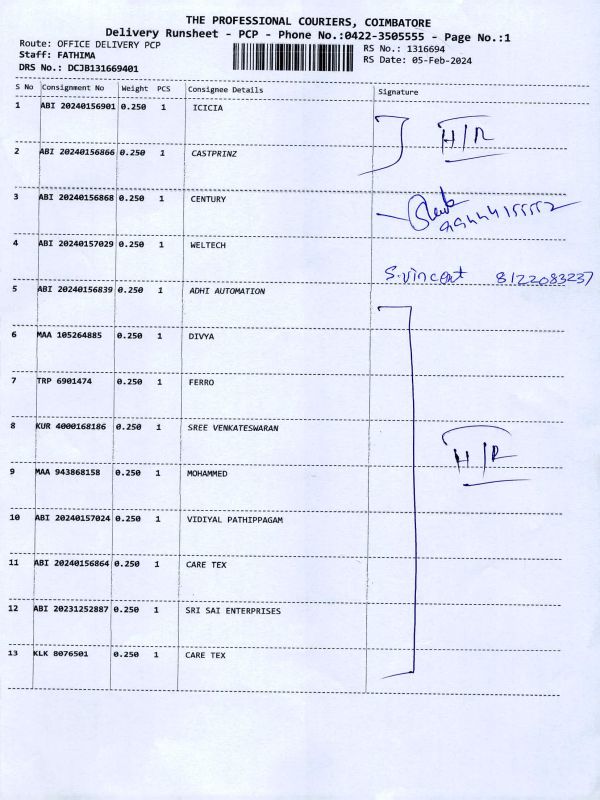 THE PROFESSIONAL COURIERS, COIMBATORE
Delivery Runsheet - PCP - Phone No.:0422-3505555 - Page No.:1
Route: OFFICE DELIVERY PCP
RS No.: 1316694
Staff: FATHIMA
RS Date: 05-Feb-2024
DRS No.: DCJB131669401
S No Consignment No Weight PCS Consignee Details Signature
1 ABI 20240156901 0.250 1 ICICIA
H/R
2 ABI 20240156866 0.250 1 CASTPRINZ
3 ABI 20240156868 0.250 1 CENTURY
4 ABI 20240157029 0.250 1 WELTECH
S.vincent 8122083237
5 ABI 20240156839 0.250 1 ADHI AUTOMATION
6 MAA 105264885 0.250 1 DIVYA
7 TRP 6901474 0.250 1 FERRO
8 KUR 4000168186 0.250 1 SREE VENKATESWARAN
H/R
9 MAA 943868158 0.250 1 MOHAMMED
10 ABI 20240157024 0.250 1 VIDIYAL PATHIPPAGAM
11 ABI 20240156864 0.250 1 CARE TEX
12 ABI 20231252887 0.250 1 SRI SAI ENTERPRISES
13 KLK 8076501 0.250 1 CARE TEX